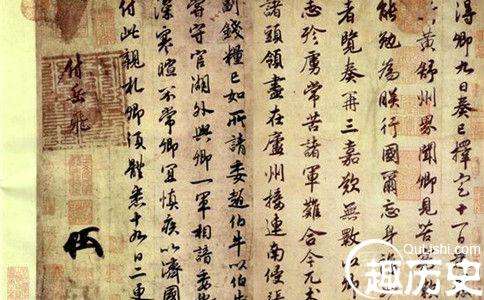 得卿九日奏已擇定十一日
黃舒州界聞卿見苦寒
能勉為朕行國爾忘身
者覽奏再三嘉歎無數
志殄虜常苦諸軍難合今兀
諸頭領盡在廬州接連南侵張
副錢糧已如所請委趙伯牛以伯牛
嘗守官湖外與卿一軍相諳委
深寒暄不常卿宜慎疾以濟國
付此親札卿須體悉十九日二更
付岳飛
QuLishi.com
趣历史